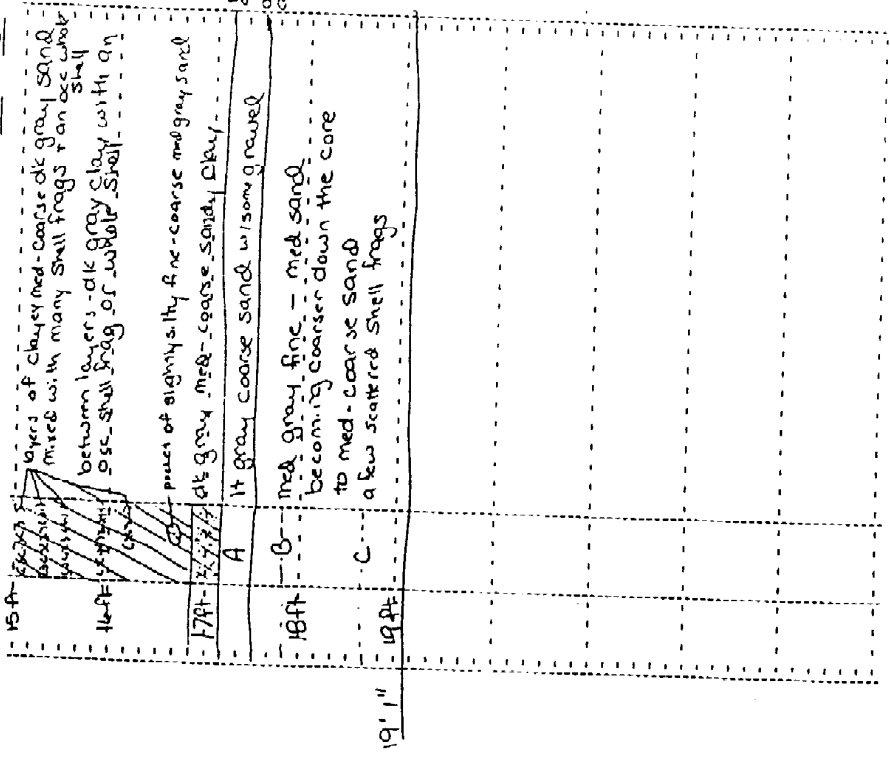 15 ft
layers of clayey med-coarse dk gray sand
mixed with many shell frags + an occ whole
shell
between layers - dk gray clay with an
occ shell frag or whole shell
16 ft
pocket of slightly silty fine-coarse med gray sand
17 ft
dk gray med-coarse sandy clay
A
lt gray coarse sand w/some gravel
B
med gray fine - med sand
18 ft
becoming coarser down the core
to med-coarse sand
C
a few scattered shell frags
19 ft
19' 1"